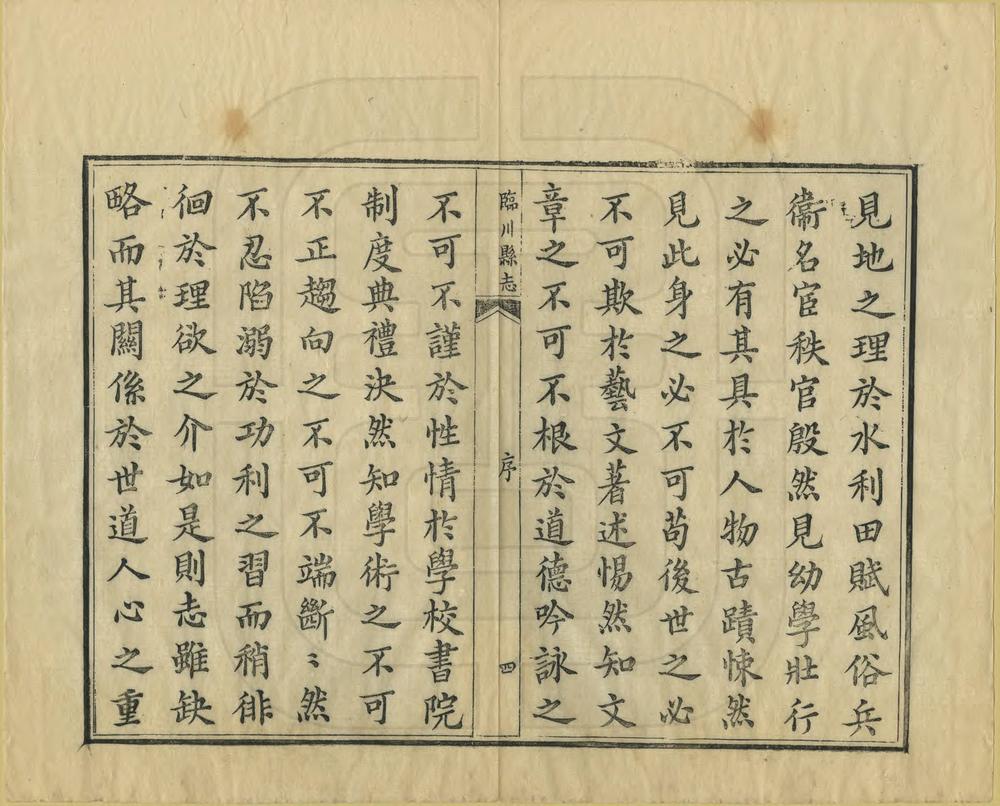 見地之理於水利田賦風俗兵
衞名宦秩官殷然見幼學壯行
之必有其具於人物古蹟悚然
見此身之必不可苟後世之必
不可欺於藝文著述惕然知文
章之不可不根於道德吟詠之
臨川縣志
序
四
不可不謹於性情於學校書院
制度典禮決然知學術之不可
不正趨向之不可不端斷〻然
不忍陷溺於功利之習而稍徘
徊於理欲之介如是則志雖缺
略而其關係於世道人心之重